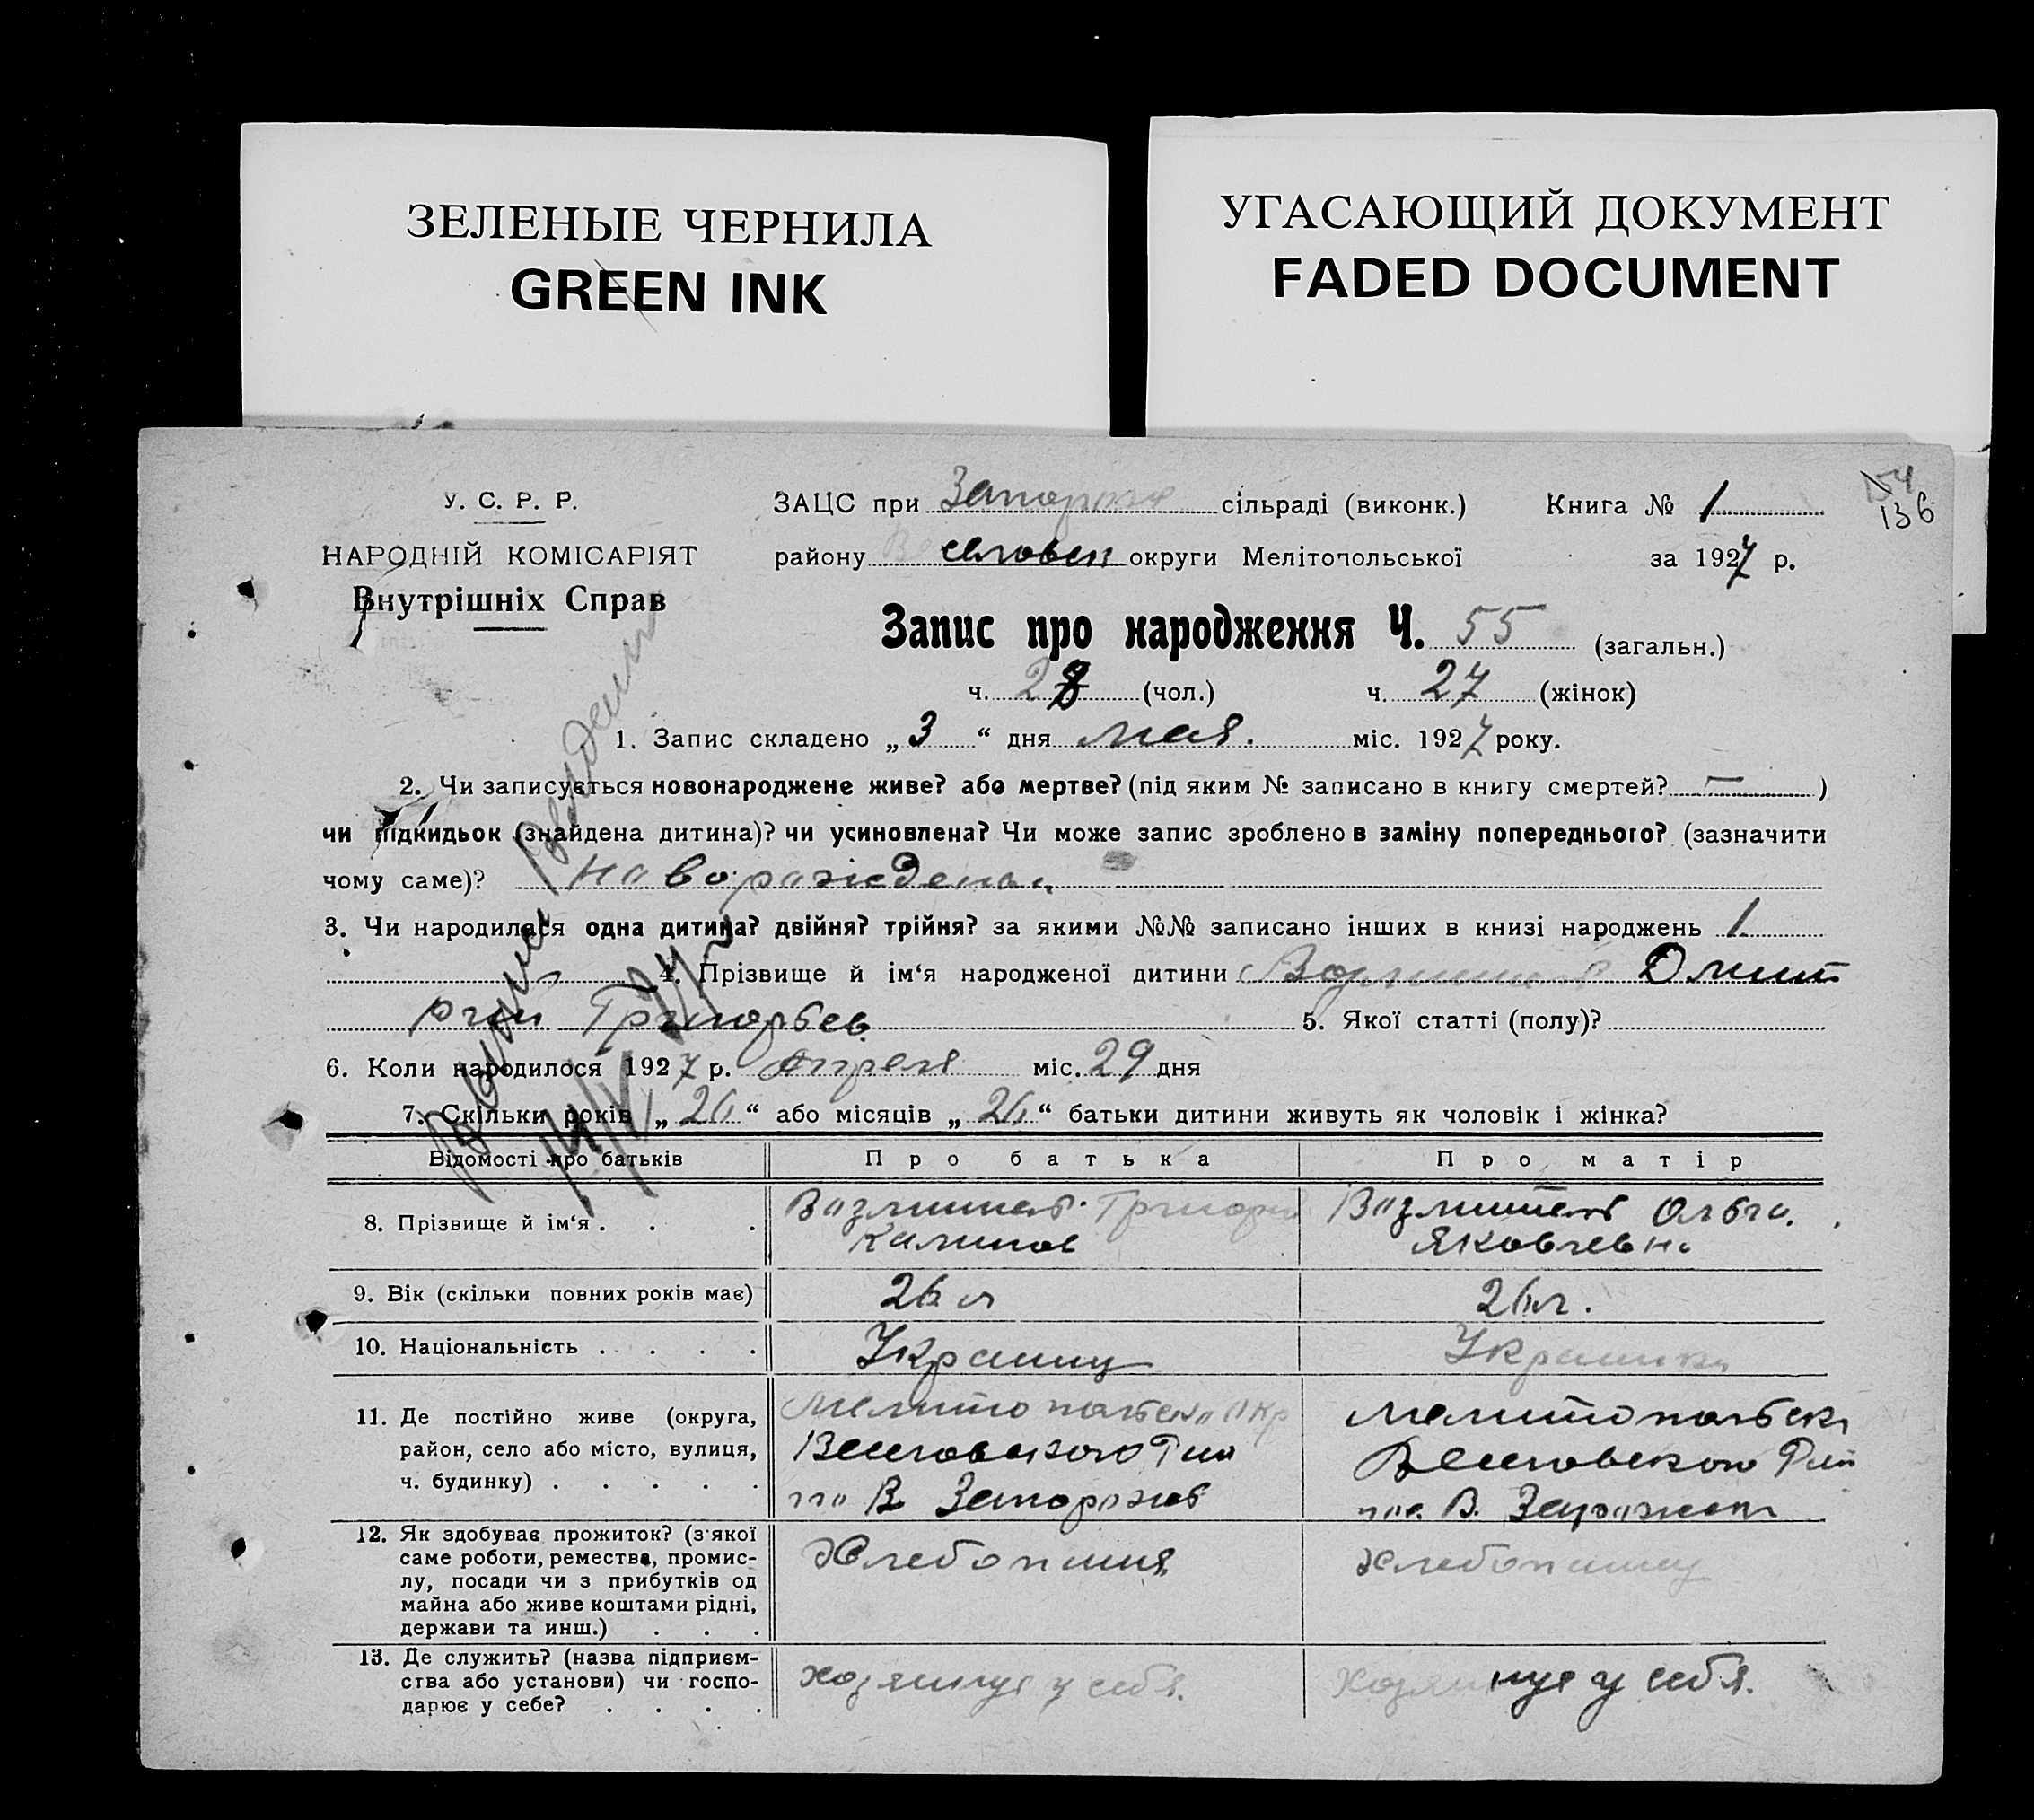 ЗЕЛЕНЫЕ ЧЕРНИЛА
GREEN INK
УГАСАЮЩИЙ ДОКУМЕНТ
FADED DOCUMENT
154
136
У. С. Р. Р.
НАРОДНІЙ КОМІСАРІЯТ
Внутрішніх Справ
ЗАЦС при Запорож сільраді (виконк.) Книга № 1
району Веселовск округи Мелітопольської за 1927 р.
Запис про народження Ч. 55 (загальн.)
ч. 28 (чол.) ч. 27 (жінок)
1. Запис складено „3“ дня мая. міс. 1927 року.
2. Чи записується новонароджене живе? або мертве? (під яким № записано в книгу смертей? — )
чи підкидьок (знайдена дитина)? чи усиновлена? Чи може запис зроблено в заміну попереднього? (зазначити
чому саме)? наворожденая
3. Чи народилася одна дитина? двійня? трійня? за якими №№ записано інших в книзі народжень 1
4. Прізвище й ім‘я народженої дитини Дмит
рий Григорьев 5. Якої статті (полу)?
6. Коли народилося 1927 р. апреля міс. 29 дня
7. Скільки років „26“ або місяців „26“ батьки дитини живуть як чоловік і жінка?
Відомості про батьків Про батька Про матір
8. Прізвище й ім‘я . . . Григорий Ольга.
Яковлевна
9. Вік (скільки повних років має) 26 л 26 л.
10. Національність . . . . Украинц Украинка
11. Де постійно живе (округа, Мелитопольска Окр Мелитопольск
район, село або місто, вулиця, Веселовского Рай Веселовского Рай
ч. будинку) . . . . . В Запорожье В.
12. Як здобуває прожиток? (з якої Хлебопашц Хлебопашец
саме роботи, ремества, промис-
лу, посади чи з прибутків од
майна або живе коштами рідні,
держави та инш.) . . .
13. Де служить? (назва підприєм- хозяинуе у себя. Хозяинуе у себя.
ства або установи) чи госпо-
дарює у себе? . . . .